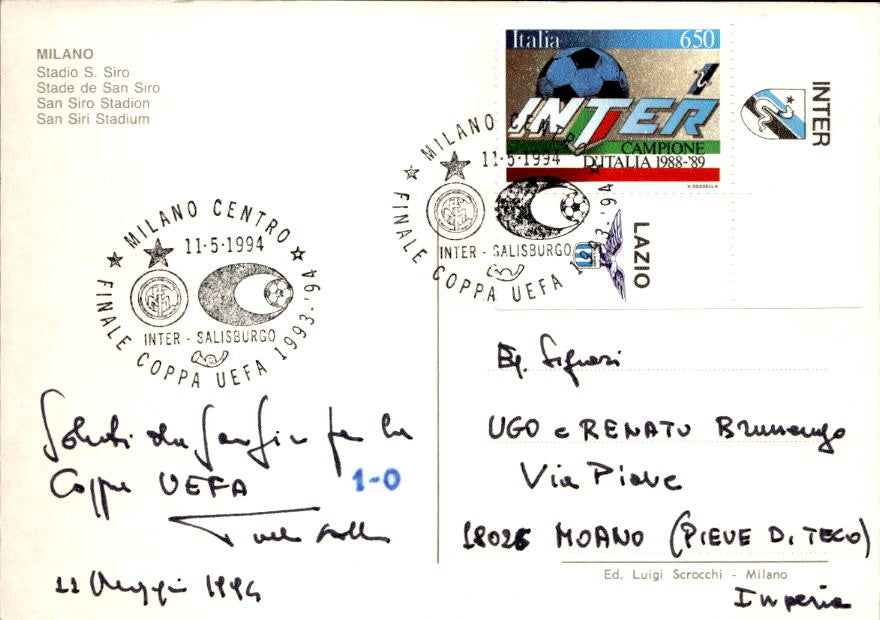 MILANO
Stadio S. Siro
Stade de San Siro
San Siro Stadion
San Siri Stadium
Italia 650
INTER
CAMPIONE
D'ITALIA 1988-'89
V. COZZELLA
INTER
LAZIO
MILANO CENTRO
11-5-1994
INTER - SALISBURGO
FINALE COPPA UEFA 1993-'94
MILANO CENTRO
11-5-1994
INTER - SALISBURGO
FINALE COPPA UEFA 1993-'94
Saluti da San Siro per la
Coppa UEFA 1-0
11 Maggio 1994
Eg. Signori
UGO e RENATO Brunengo
Via Piave
18026 MOANO (PIEVE DI TECO)
Imperia
Ed. Luigi Scrocchi - Milano